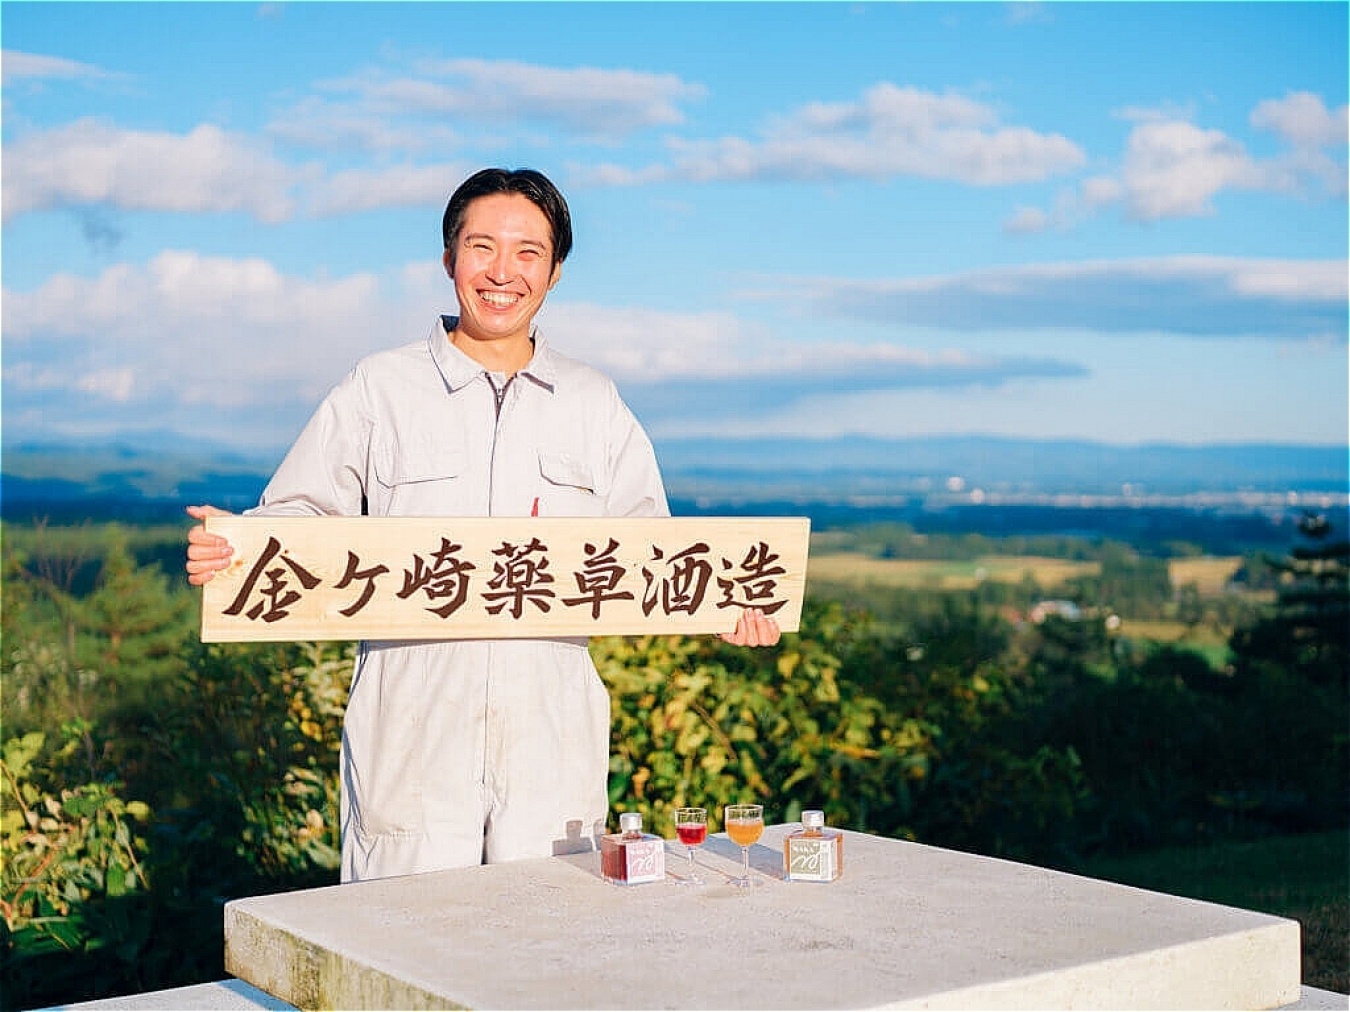 金ケ崎薬草酒造